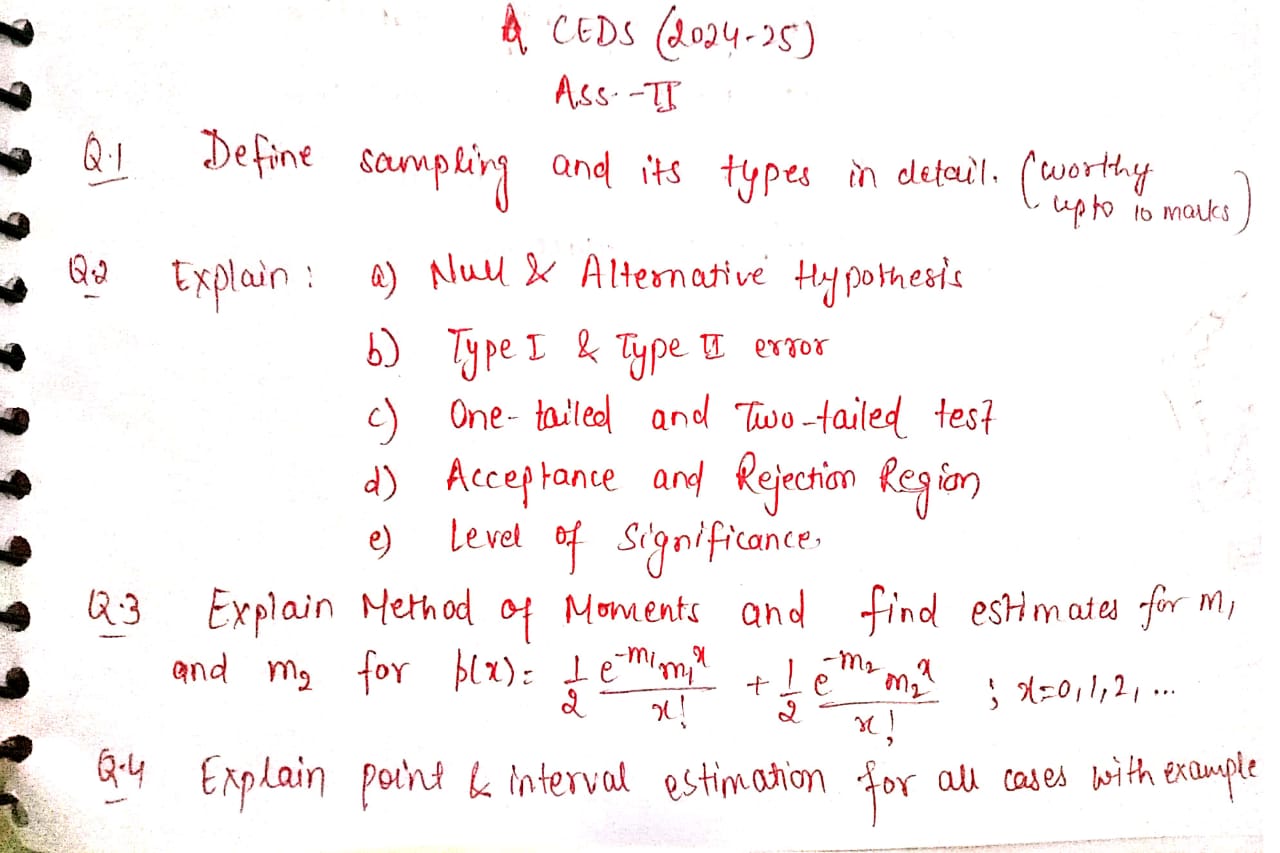 CEDS (2024-25)
Ass.-II
Q.1 Define sampling and its types in detail. (worthy upto 10 marks)
Q.2 Explain : a) Null & Alternative Hypothesis
b) Type I & Type II error
c) One-tailed and Two-tailed test
d) Acceptance and Rejection Region
e) Level of Significance.
Q.3 Explain Method of Moments and find estimates for m₁
and m₂ for p(x) = 1/2 e^{-m₁} m₁^x / x! + 1/2 e^{-m₂} m₂^x / x! ; x=0,1,2,...
Q.4 Explain point & interval estimation for all cases with example